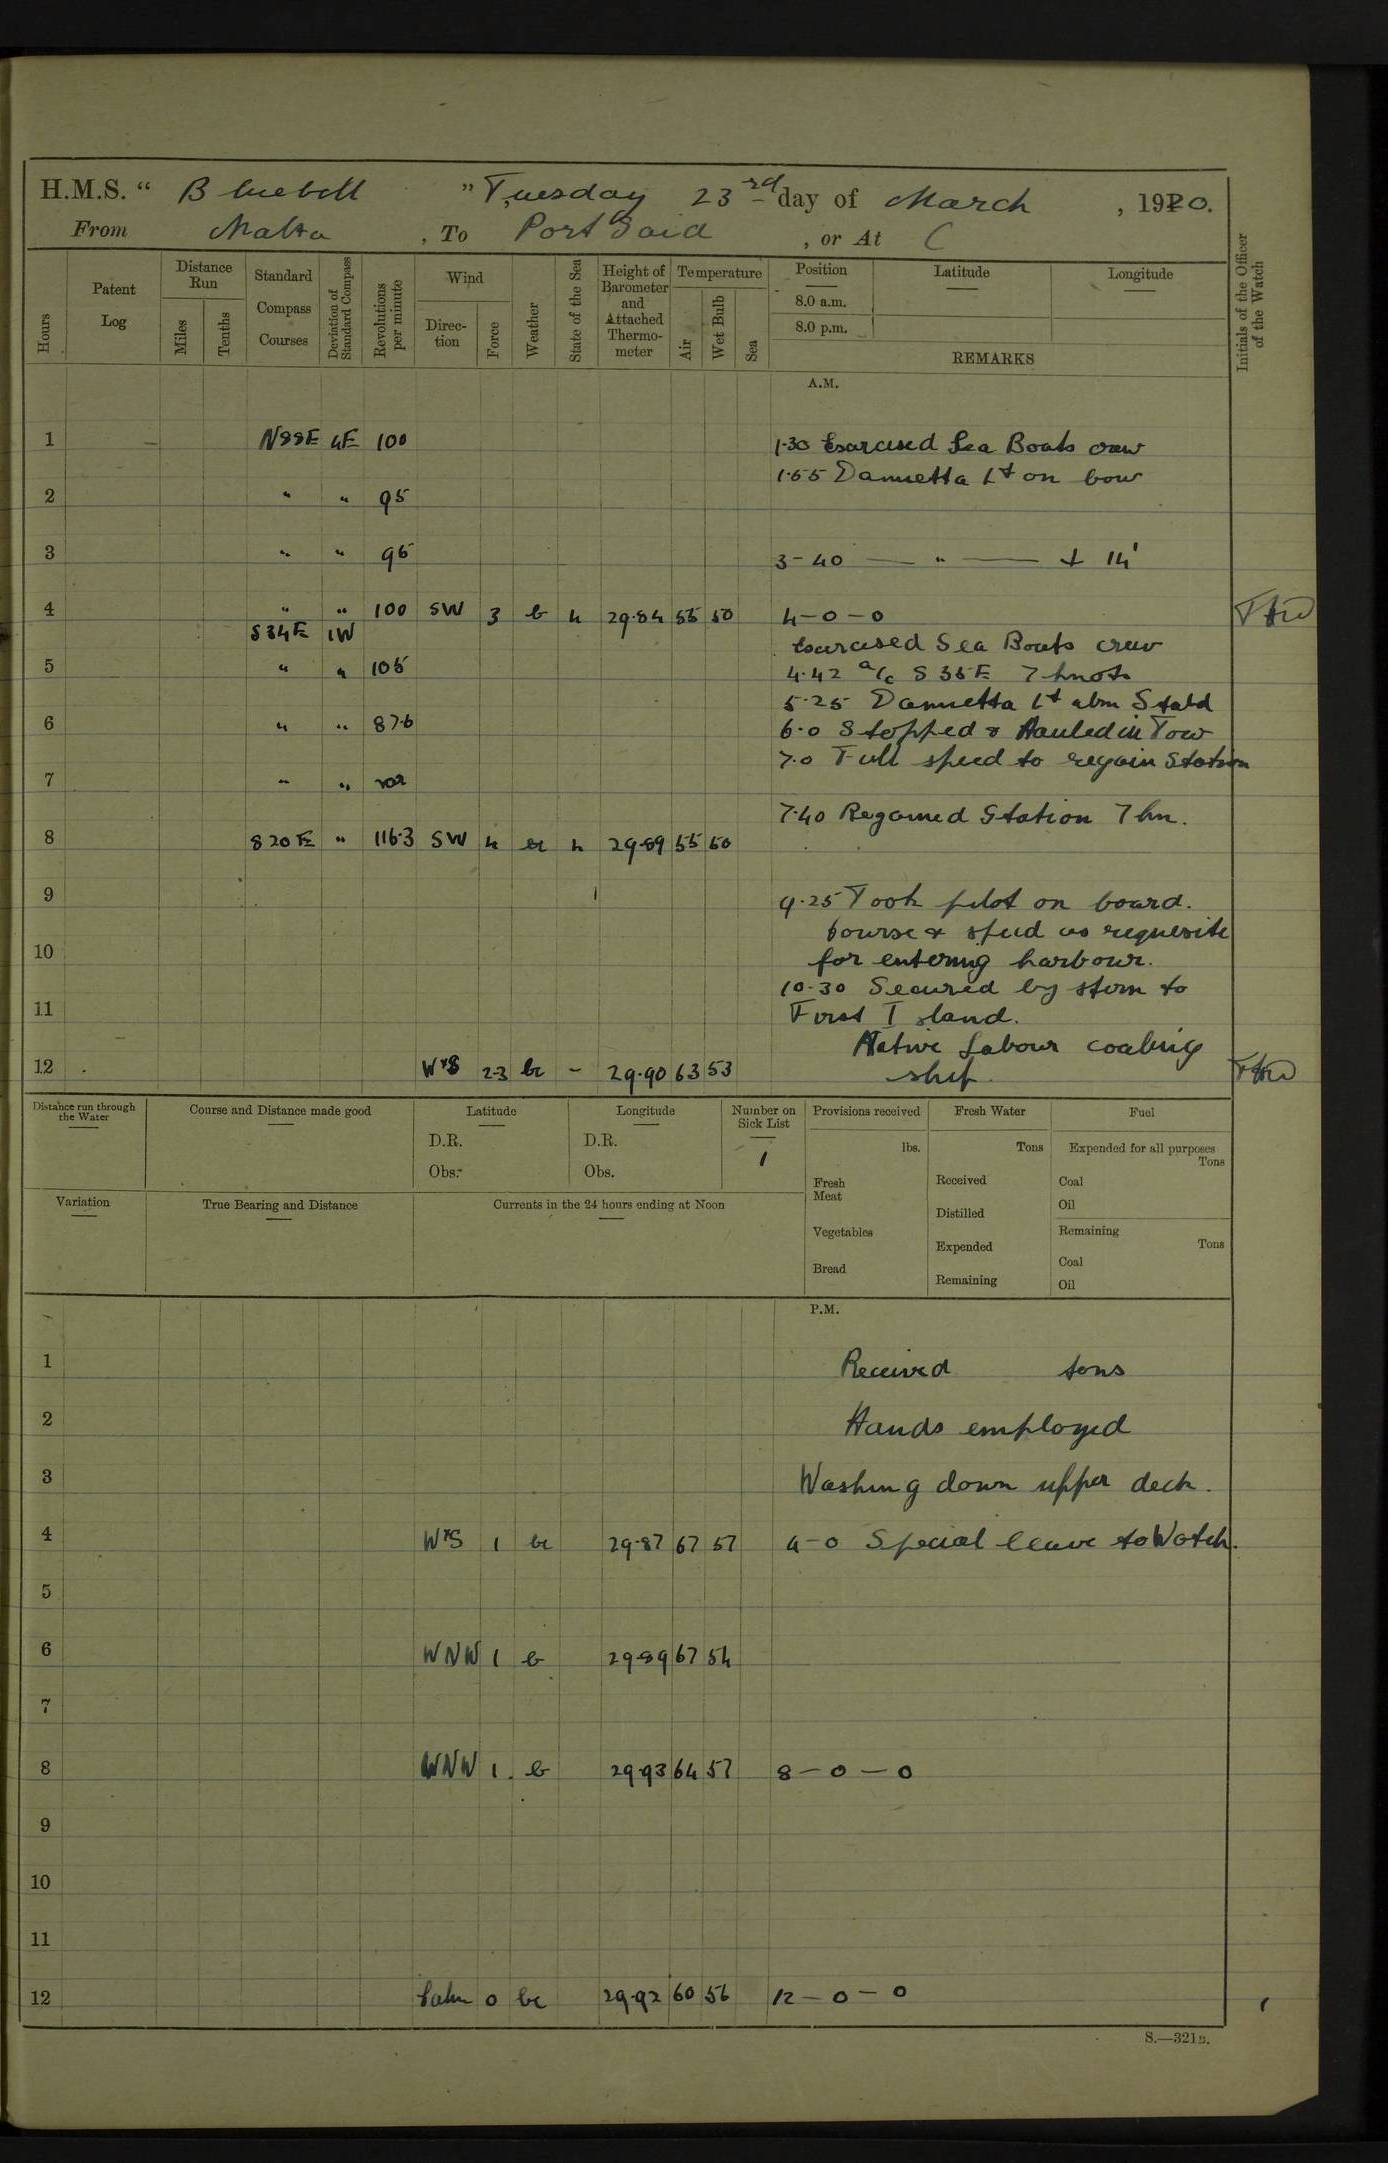 H.M.S. “ Bluebell ” Tuesday 23rd day of March , 1920.
From Malta , To Port Said , or At
Hours
Patent Log
Distance Run
Miles
Tenths
Standard Compass Courses
Deviation of Standard Compass
Revolutions per minute
Wind
Direction
Force
Weather
State of the Sea
Height of Barometer and Attached Thermometer
Temperature
Air
Wet Bulb
Sea
Position
8.0 a.m.
8.0 p.m.
Latitude
Longitude
REMARKS
Initials of the Officer of the Watch
A.M.
1 N88E 4E 100 1.30 Exercised Sea Boats crew
1.55 Damietta Lt on bow
2 " " 95
3 " " 95 3-40 — " — 14'
4 " " 100 SW 3 b 4 29.84 55 50 4-0-0
S34E 1W
Exercised Sea Boats crew
5 " " 105 4.42 a/c S 35 E 7 knots
5.25 Damietta Lt abm Stabd
6 " " 87.6 6.0 Stopped & Hauled in Tow
7.0 Full speed to regain Station
7 " " 102
7.40 Regained Station 7 kn.
8 S20E " 116.3 SW 4 bc 4 29.89 55 50
9 9.25 Took pilot on board.
Course & speed as requesite
10 for entering harbour.
10.30 Secured by stern to
11 First Island.
Native Labour coaling
12 W'S 2-3 bc - 29.90 63 53 ship.
Distance run through the Water
Course and Distance made good
Latitude
D.R.
Obs.
Longitude
D.R.
Obs.
Number on Sick List
1
Provisions received
lbs.
Fresh Meat
Vegetables
Bread
Fresh Water
Tons
Received
Distilled
Expended
Remaining
Fuel
Expended for all purposes
Tons
Coal
Oil
Remaining
Tons
Coal
Oil
Variation
True Bearing and Distance
Currents in the 24 hours ending at Noon
P.M.
1 Received tons
2 Hands employed
3 Washing down upper deck.
4 W'S 1 bc 29.87 67 57 4-0 Special leave to Watch.
5
6 WNW 1 b 29.89 67 54
7
8 WNW 1 b 29.93 64 57 8-0-0
9
10
11
12 Calm 0 bc 29.92 60 56 12-0-0
S.—321B.